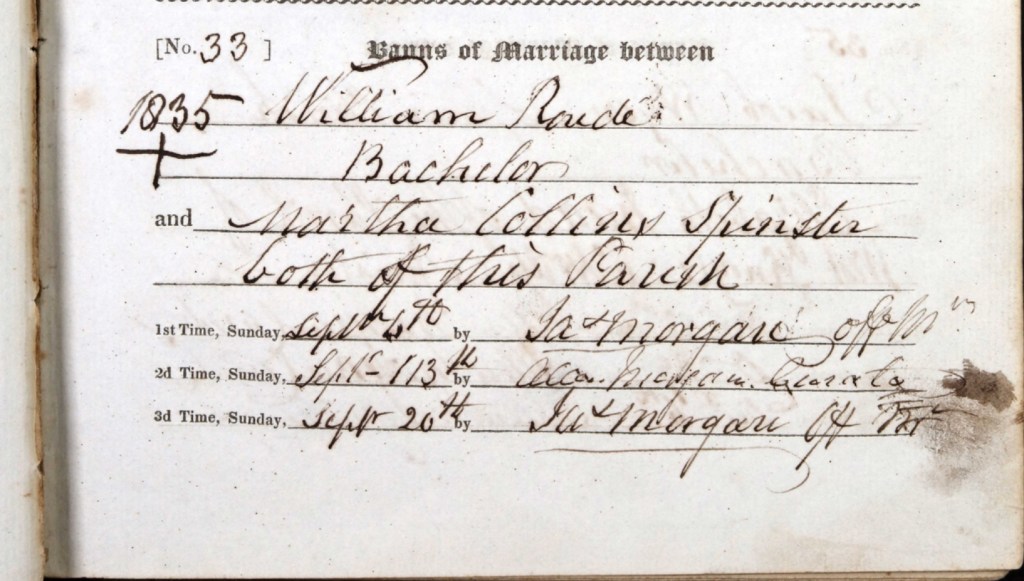 [No. 33 ] Banns of Marriage between
1835 William Roude
Bachelor
and Martha Collins Spinster
both of this Parish
1st Time, Sunday, Septr 6th by Jas Morgan off Mr
2d Time, Sunday, Septr 13th by Morgan Curate
3d Time, Sunday, Septr 20th by Jas Morgan Off Mr